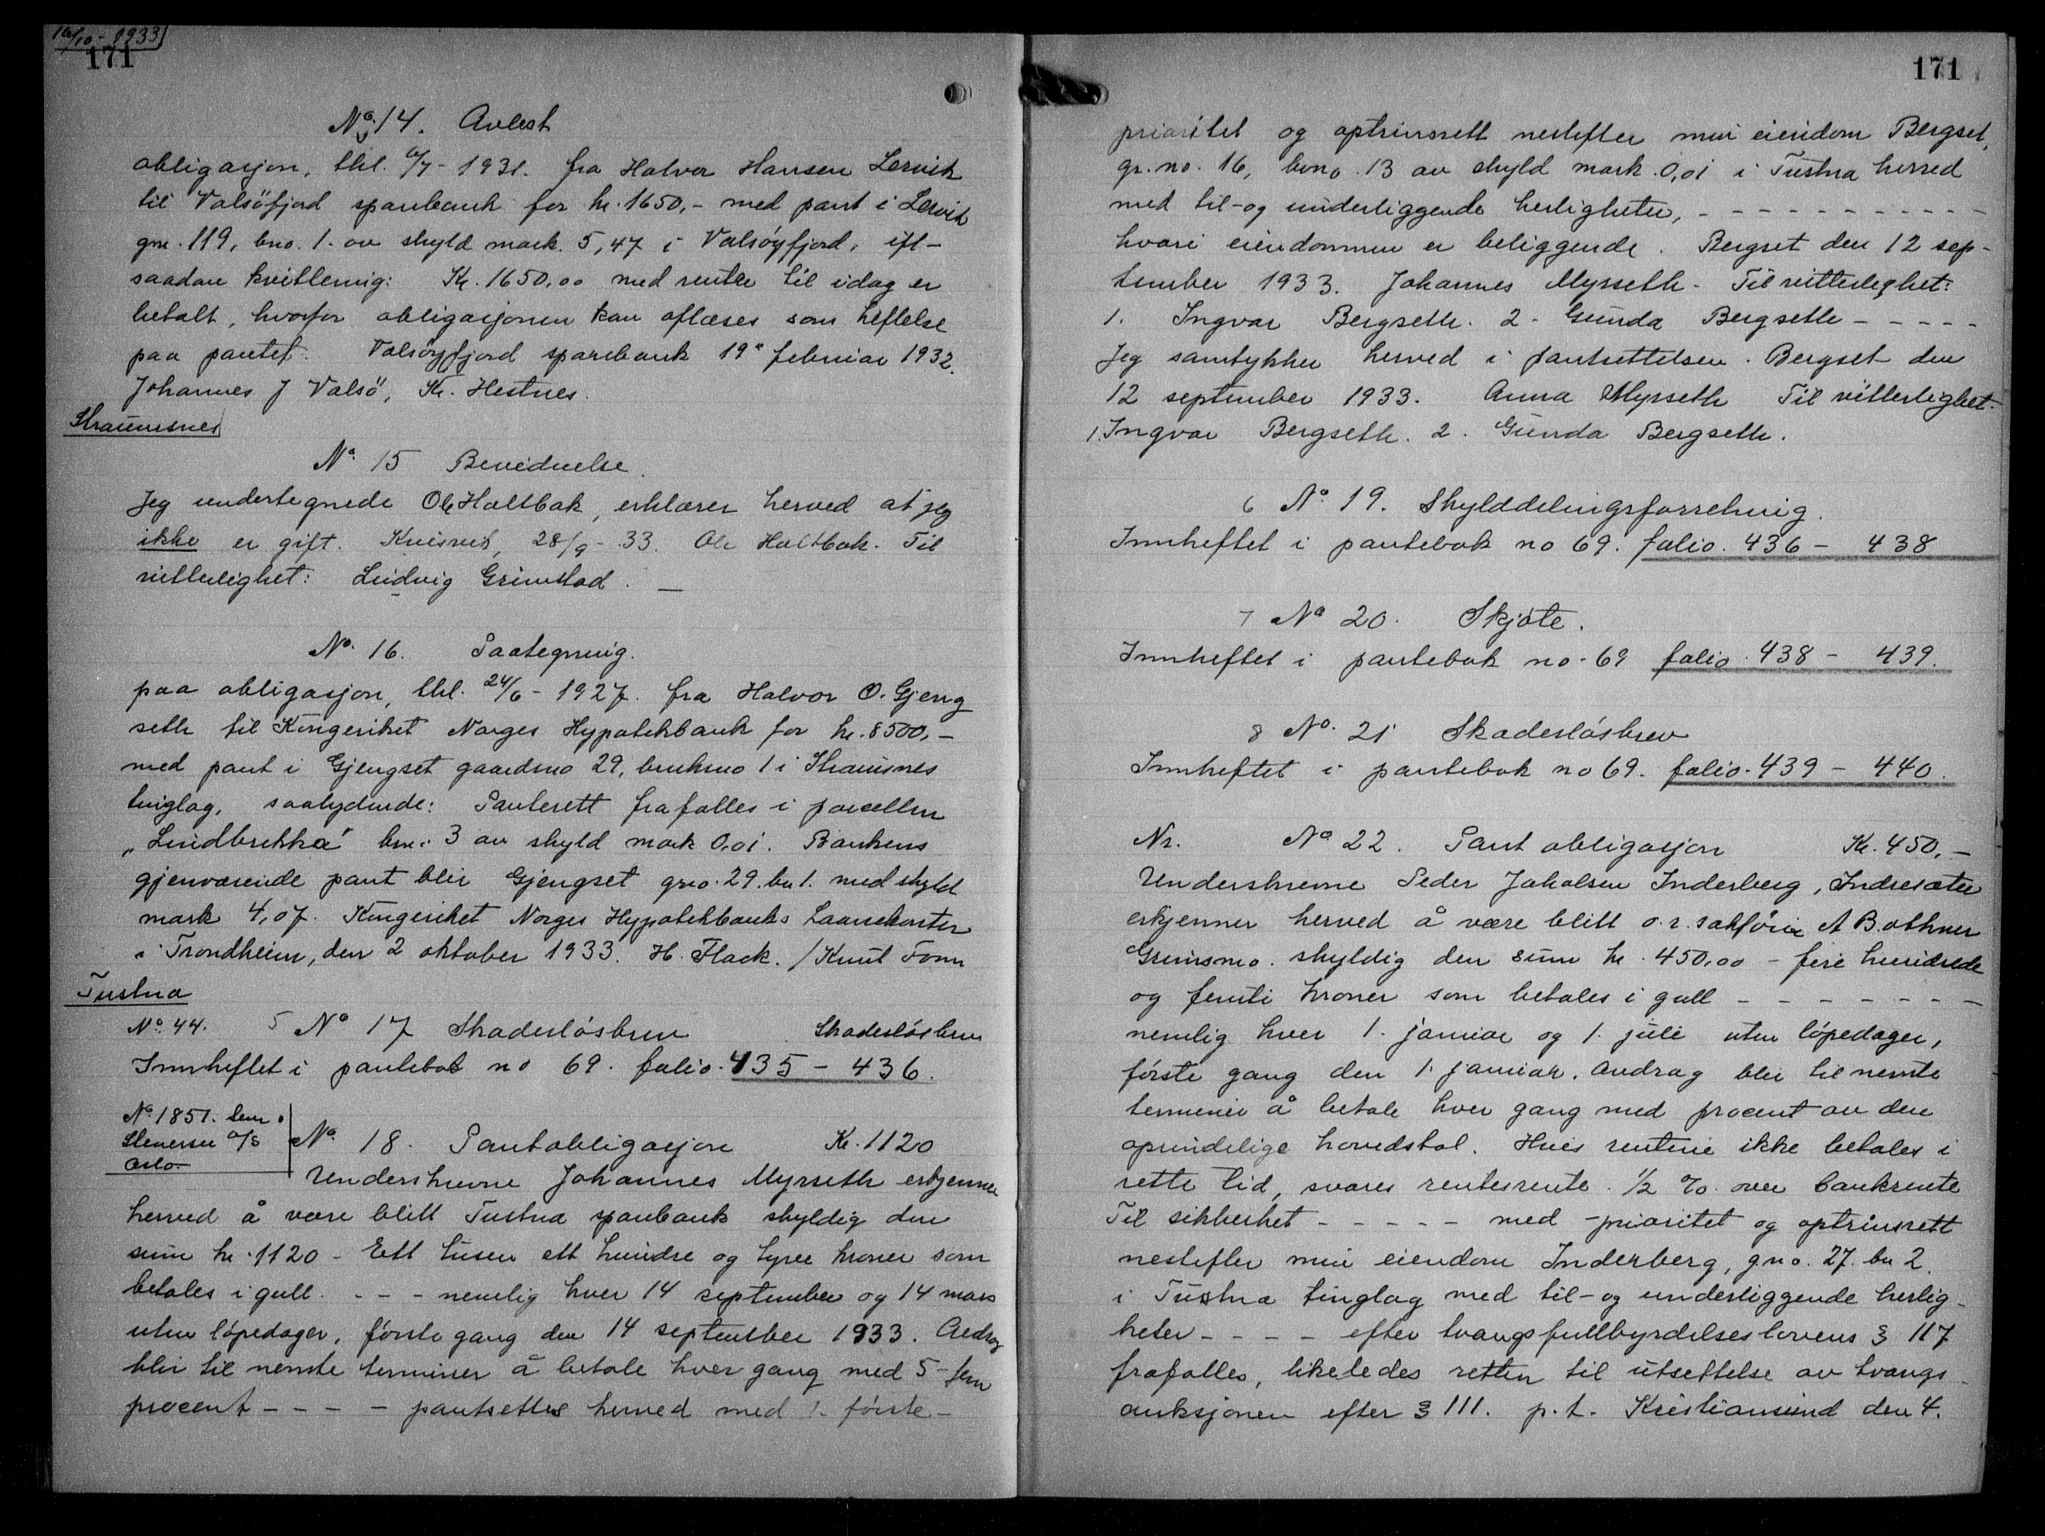 16/10 - 1933
171
No. 14. Avlest
obligasjon, tkl. 6/7 - 1931. fra Halvor Hansen Lervik
til Valsöfjord sparebank for kr. 1650,- med pant i Lervik
gne. 119, bno. 1. av skyld mark. 5,47 i Valsøyfjord, ifl-
saadan kvittering: Kr. 1650,00 med renter til idag er
betalt, hvorfor obligasjonen kan aflæses som heftelse
paa pantet. Valsøyfjord sparebank 19. februar 1932.
Johannes J Valsö, Kr. Hestnes.
Straumsnes
No. 15 Bevidnelse.
Jeg undertegnede Ole Holtbak, erklærer herved at jeg
ikke er gift. Kvisvik, 28/9 - 33. Ole Holtbak. Til
vitterlighet: Ludvig Grimstad.
No. 16. Paategning.
paa obligasjon, tkl. 24/6 - 1927. fra Halvor O. Gjeng
seth til Kongeriket Norges Hypotekbank for kr. 8500,-
med pant i Gjengset gaardsno 29, bruksno 1 i Straumsnes
tinglag, saalydende: Panterett frafalles i parcellen
„Lindbrekka" bno. 3 av skyld mark 0,01. Bankens
gjenværende pant blir Gjengset gno. 29. bn 1. med skyld
mark 4,07. Kongeriket Norges Hypotekbanks Laanekontor
i Trondheim, den 2 oktober 1933. H. Flack. / Knut Fonn
Tustna
No. 44. 5 No 17 Skadesløsbrev Skadesløsbrev
Innheftet i pantebok no 69. folio. 435 - 436.
No. 1851. Sem o
Stenersen A/S
Oslo
No. 18. Pantobligasjon Kr. 1120
Underskrevne Johannes Myrseth erkjenner
herved å være blitt Tustna sparebank skyldig den
sum kr. 1120 - Ett tusen ett hundre og tyve kroner som
betales i gull. - - - nemlig hver 14 september og 14 mars
uten løpedager, første gang den 14 september 1933. Andrag
blir til nevnte terminer å betale hver gang med 5 - fem
procent - - - - pantsettes herved med 1. første -
171
prioritet og optrinsrett nestefter min eiendom Bergset,
gr. no. 16, bno. 13 av skyld mark. 0,01 i Tustna herred
med til- og underliggende herligheter, - - - - - - - - - -
hvori eiendommen er beliggende. Bergset den 12 sep-
tember 1933. Johannes Myrseth - Til vitterlighet:
1. Ingvar Bergseth. 2. Gunda Bergseth - - - - -
Jeg samtykker herved i pantsettelsen. Bergset den
12 september 1933. Anna Myrseth Til vitterlighet.
1. Ingvar Bergseth. 2. Gunda Bergseth.
6 No. 19. Skylddelingsforretning.
Innheftet i pantebok no 69. folio. 436 - 438
7 No 20. Skjøte.
Innheftet i pantebok no. 69 folio. 438 - 439.
8 No. 21 Skadesløsbrev
Innheftet i pantebok no 69. folio. 439 - 440.
Nr. No 22. Pantobligasjon Kr. 450,-
Underskrevne Peder Jakobsen Inderberg, Indresæter
erkjenner herved å være blitt o.r. sakfører A Bothner
Grimsmo. skyldig den sum kr. 450,00 - fire hundrede
og femti kroner som betales i gull - - - - - - - -
nemlig hver 1. januar og 1. juli uten løpedager,
første gang den 1. januar. Andrag blir til nevnte
terminer å betale hver gang med procent av den
oprindelige hovedstol. Hvis rentene ikke betales i
rette tid, svares rentesrente. 1/2 %. over bankrente
Til sikkerhet - - - - - med - prioritet og optrinsrett
nestefter min eiendom Inderberg, gno. 27. bn 2.
i Tustna tinglag med til- og underliggende herlig-
heter - - - - efter tvangsfullbyrdelseslovens § 117
frafalles, likeledes retten til utsettelse av tvangs-
auksjonen efter § 111. p.t. Kristiansund den 4.